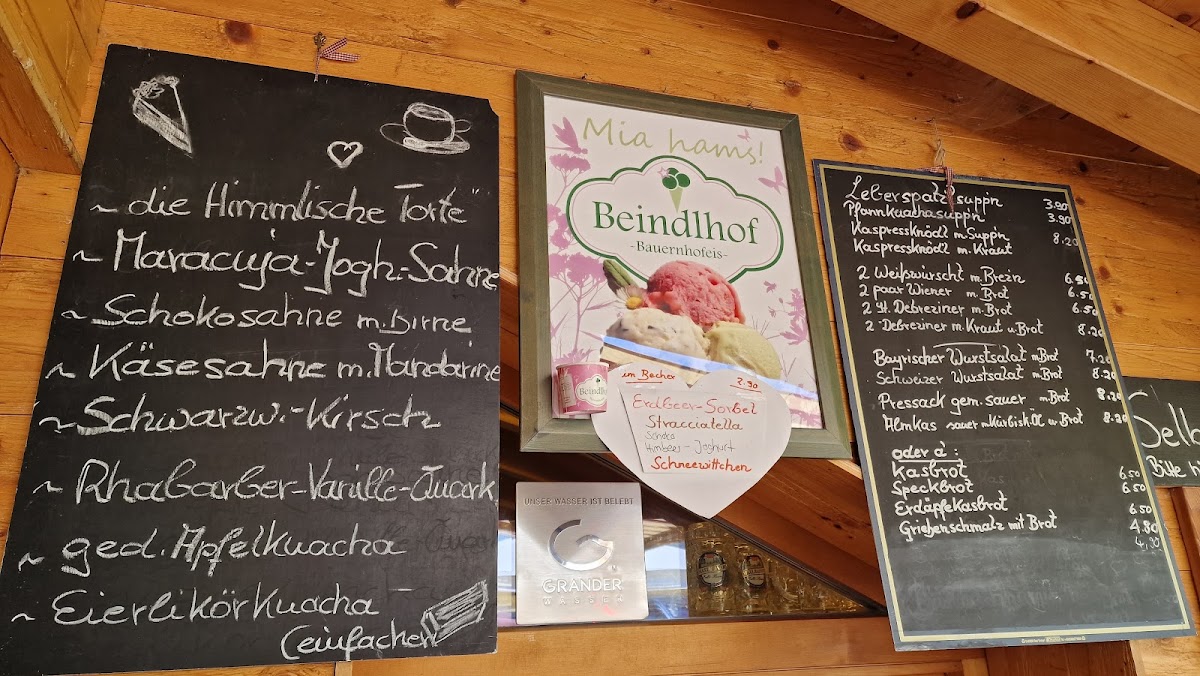 ~ die Himmlische Torte"
~ Maracuja-Jogh.-Sahne
~ Schokosahne m. Birne
~ Käsesahne m. Mandarine
~ Schwarzw.-Kirsch
~ Rhabarber-Vanille-Quark
~ ged. Apfelkuacha
~ Eierlikörkuacha
(einfacher)
Mia hams!
Beindlhof
-Bauernhofeis-
Beindlh
im Becher 2.90
Erdbeer-Sorbet
Stracciatella
Schoko
Himbeer-Joghurt
Schneewittchen
UNSER WASSER IST BELEBT
GRANDER
WASSER
Leberspatzlsuppn 3.90
Pfannkuachasuppn 3.90
Kaspressknödl m. Suppn 8.20
Kaspressknödl m. Kraut
2 Weißwürscht m. Brezn 6.90
2 paar Wiener m. Brot 6.50
2 St. Debreziner m. Brot 6.50
2 Debreziner m. Kraut u. Brot 8.20
Bayrischer Wurstsalat m. Brot 7.20
Schweizer Wurstsalat m. Brot 8.20
Pressack gem. sauer m. Brot 8.20
Almkas sauer m. Kürbisk.Öl u. Brot 8.20
oder a :
Kasbrot 6.50
Speckbrot 6.50
Erdäpfekasbrot 6.50
Griebenschmalz mit Brot 4.80
4,30
Selb
Bitte